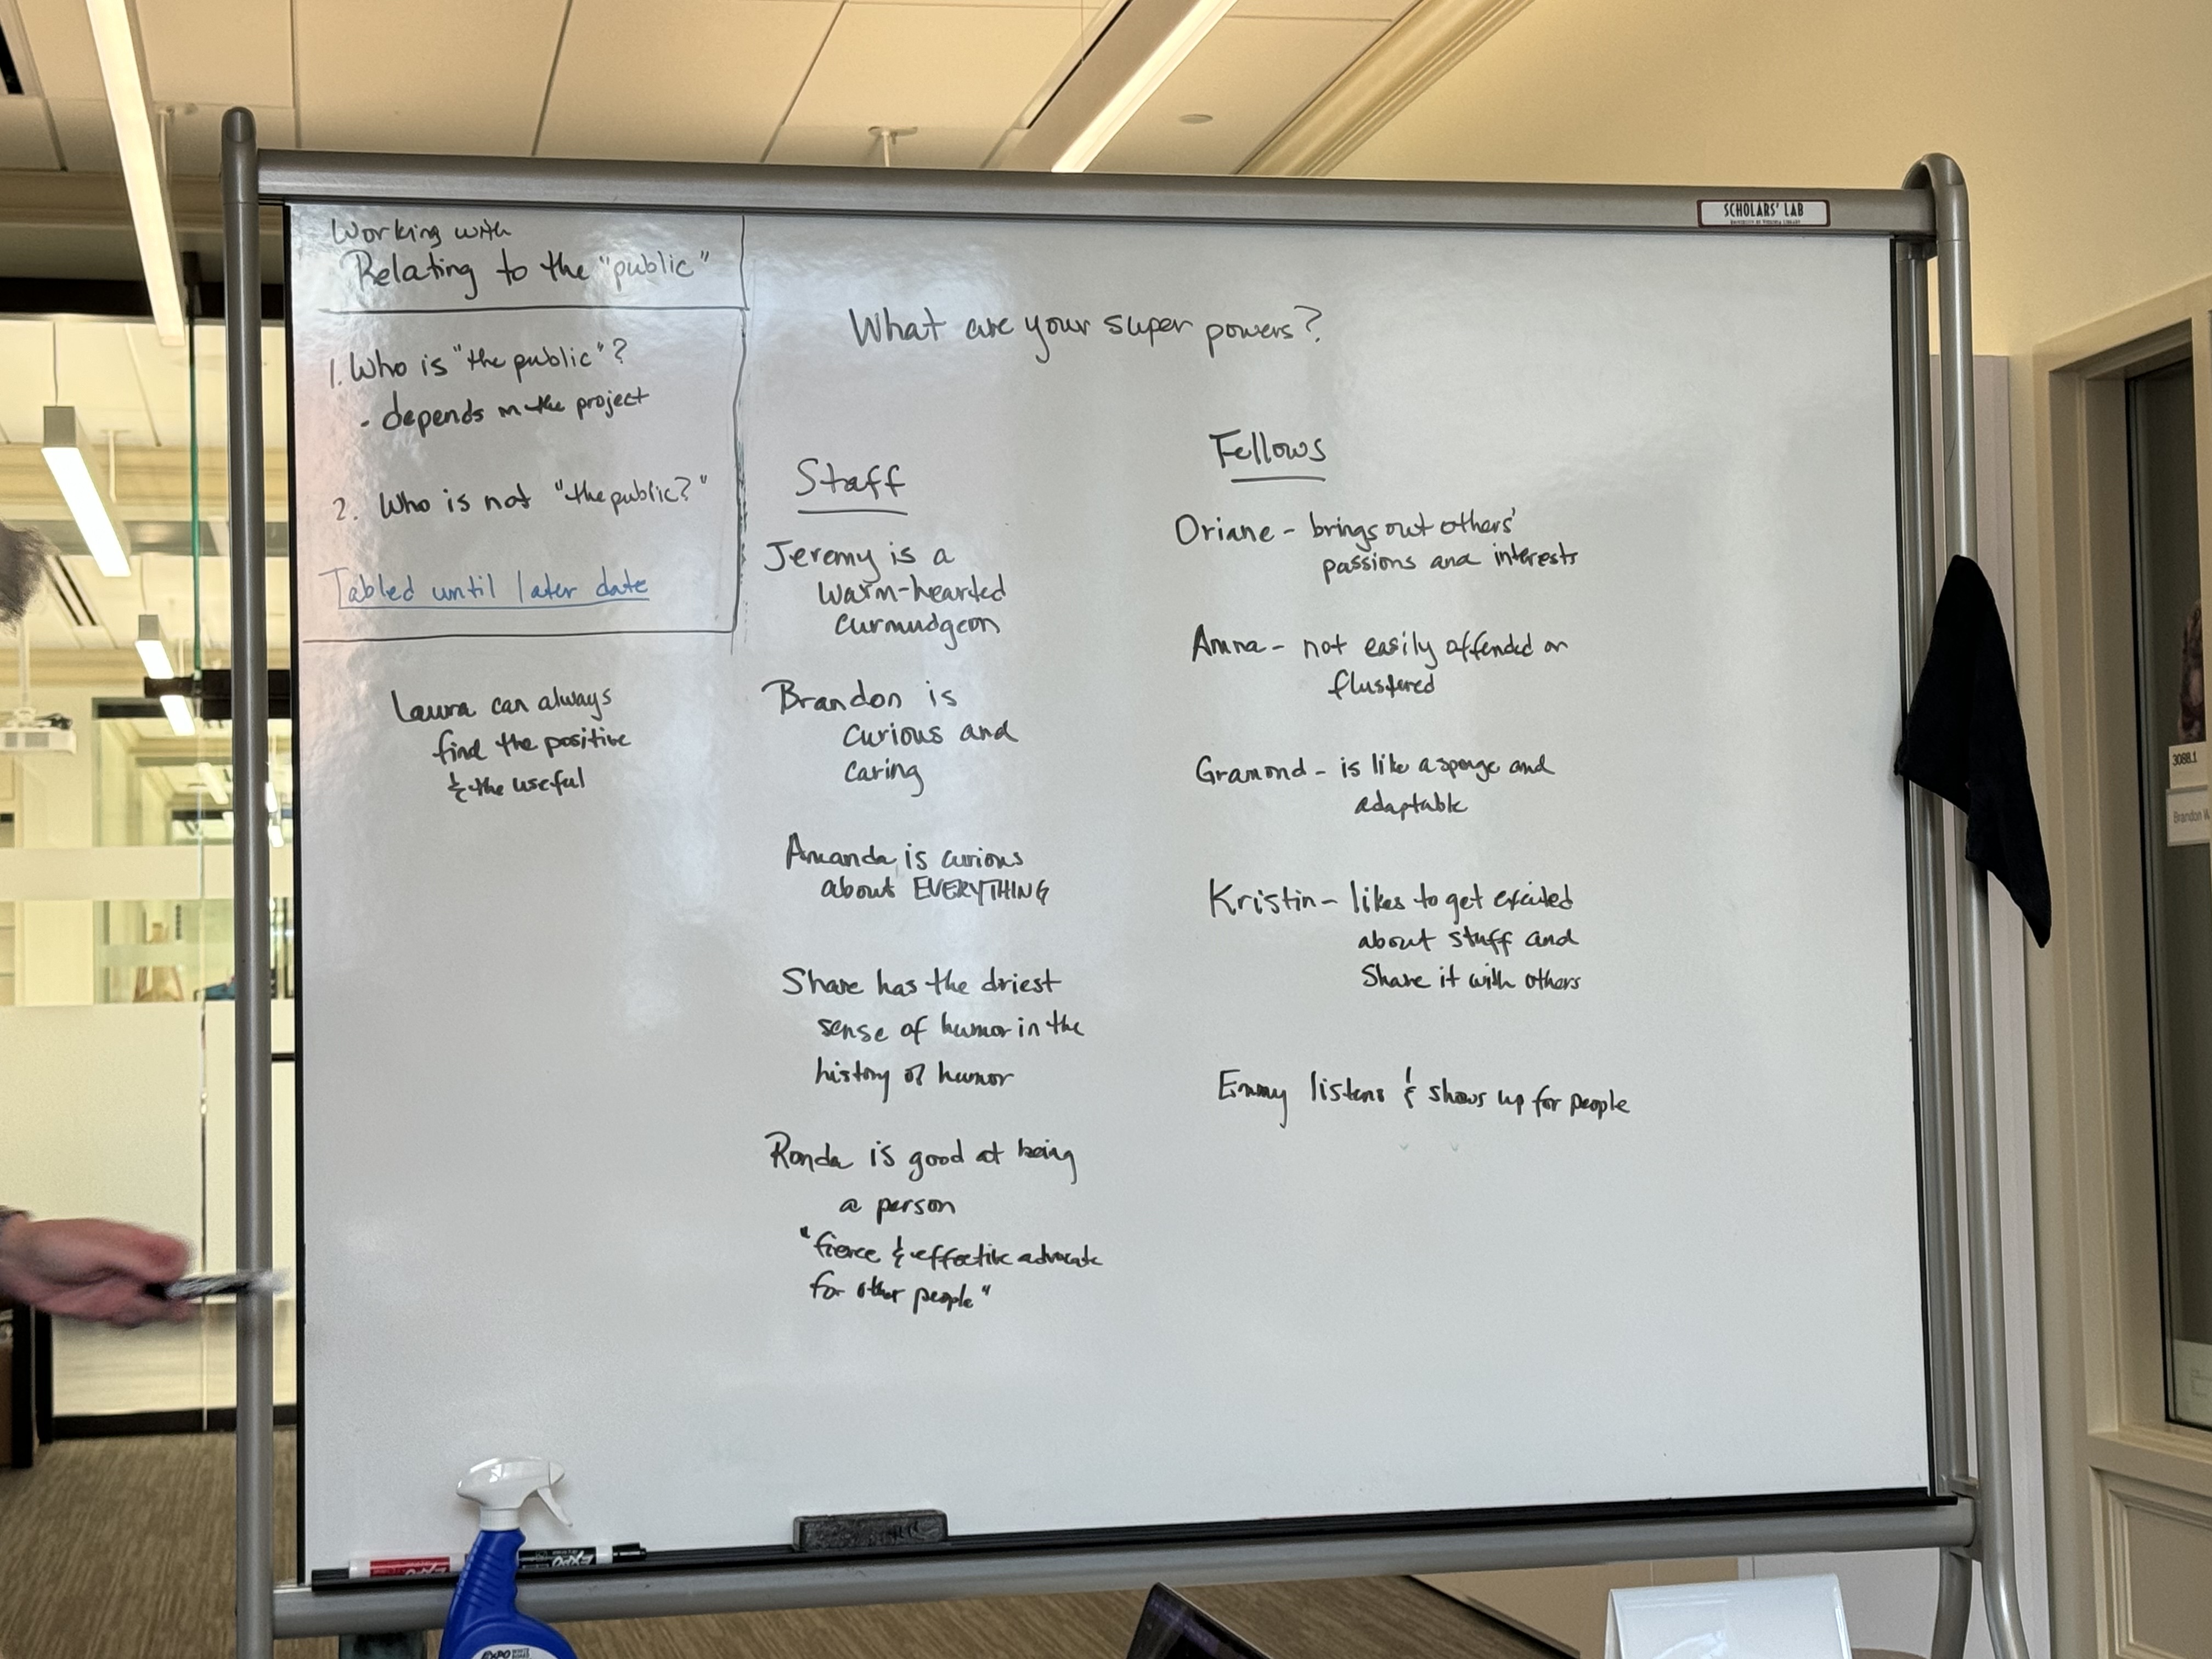 SCHOLARS' LAB
Working with
Relating to the "public"
1. Who is "the public"?
- depends on the project
2. Who is not "the public?"
Tabled until later date
Laura can always
find the positive
& the useful
What are your super powers?
Staff
Jeremy is a
warm-hearted
curmudgeon
Brandon is
curious and
caring
Amanda is curious
about EVERYTHING
Shane has the driest
sense of humor in the
history of humor
Ronda is good at being
a person
"fierce & effective advocate
for other people"
Fellows
Oriane - brings out others'
passions and interests
Amna - not easily offended or
flustered
Gramond - is like a sponge and
adaptable
Kristin - likes to get excited
about stuff and
share it with others
Emmy listens & shows up for people
3088.1
Brandon W
EXPO
EXPO
EXPO